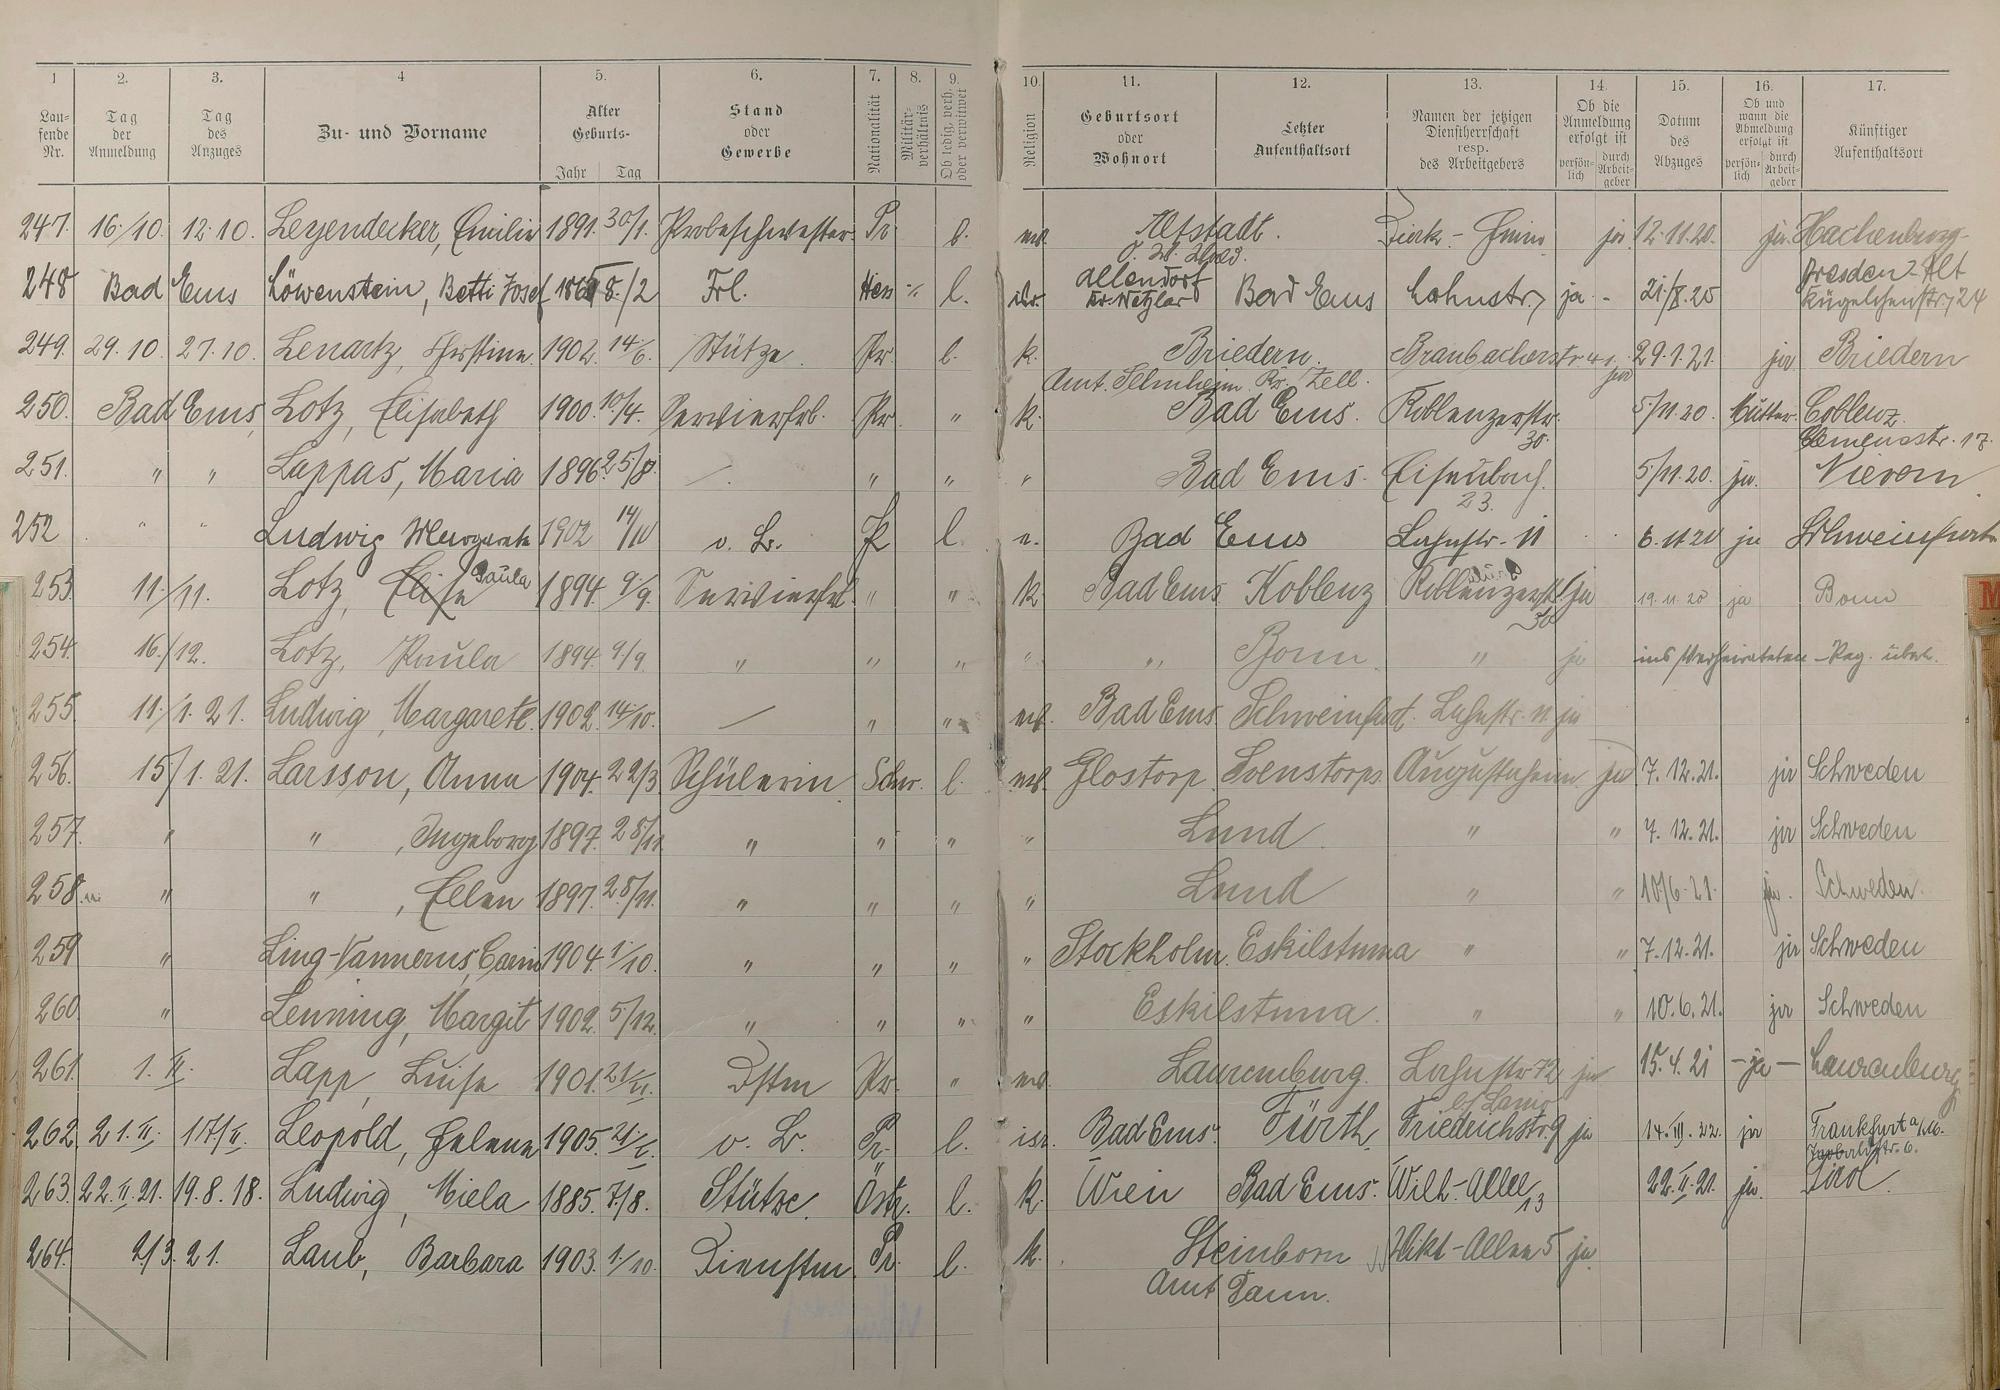 1 2. 3. 4 5. 6. 7. 8. 9. 10. 11. 12. 13. 14. 15. 16. 17.
Lau-
fende
Nr.
Tag
der
Anmeldung
Tag
des
Anzuges
Zu- und Vorname
Alter
Geburts-
Jahr Tag
Stand
oder
Gewerbe
Nationalität
Militär-
verhältnis
Ob ledig, verh.
oder verwitwet
Religion
Geburtsort
oder
Wohnort
Letzter
Aufenthaltsort
Namen der jetzigen
Dienstherrschaft
resp.
des Arbeitgebers
Ob die
Anmeldung
erfolgt ist
persön-
lich
durch
Arbeit-
geber
Datum
des
Abzuges
Ob und
wann die
Abmeldung
erfolgt ist
persön-
lich
durch
Arbeit-
geber
Künftiger
Aufenthaltsort
247. 16/10. 12.10. Leyendecker, Emilie 1891. 30/1. Probeschwester Pr. l. Altstadt. ja 12.11.20. ja Hachenburg
248 Bad Ems Löwenstein, Betti Josef 8./2 Frl. Hess l. Allendorf Bad Ems Lahnstr. 7 ja - 21./8.20 Dresden-Alt
Kr. Wetzlar Kügelchenstr. 24
249. 29.10. 27.10. Lenartz, Christine 1902. 14./6. Stütze. Pr. l. k. Briedern. Braubacherstr. 41. ja 29.1.21. ja Briedern
Amt. Zell.
250. Bad Ems, Lotz, Elisabeth 1900. 10/4. Servierfrl. Pr. " k. Bad Ems. Koblenzerstr. 30. 5/11.20. Mutter. Coblenz
Clemensstr. 17.
251. " " Lappas, Maria 1896. 25/8. " " " Bad Ems. Eisenbach 23. 5/11.20. ja. Nievern
252 " " Ludwig Margarete 1902 14/10 o. B. Pr l. e. Bad Ems Lahnstr. 11 6.11.20 ja Schweinfurt
253. 11./11. Lotz, Elise Paula 1894. 9/9. Servierfrl. " " k. Bad Ems. Koblenz Koblenzerstr. 30 ja 19.11.20 ja Bonn
254. 16./12. Lotz, Paula 1894. 9/9. " " " " " Bonn. " ja ins Verheirateten-Reg. übert.
255. 11./1.21. Ludwig, Margarete. 1902. 14/10. — " " ev. Bad Ems. Schweinfurt. Lahnstr. 11 ja
256. 15/1.21. Larsson, Anna 1904. 22/3 Schülerin Schw. l. ev. Glostorp Svenstorps Augustaheim ja 7.12.21. ja Schweden
257. " " , Ingeborg 1897. 28/11 " " " " Lund " " 7.12.21. ja Schweden
258. " " , Ellen 1897. 28/11. " " " " Lund " " 10/6.21. ja. Schweden.
259 " Ling-Vannerus, Carin 1904. 1/10. " " " " Stockholm. Eskilstuna " " 7.12.21. ja Schweden
260 " Lenning, Margit 1902. 5/12. " " " " Eskilstuna. " " 10.6.21. ja Schweden
261. 1.II. Lapp, Luise 1901. 21/II. Dstm Pr. " ev. Laurenburg. Lahnstr. 72 ja 15.4.21 - ja - Laurenburg
262. 21.II. 17/II. Leopold, Helene 1905. 21/I. o. B. Pr. l. isr. Bad Ems. Fürth. Friedrichstr. 9 ja 14.III.22. ja Frankfurt a/M.
263. 22.II.21. 19.8.18. Ludwig, Miela 1885. 7/8. Stütze. Östr. l. k. Wien Bad Ems. Wilh-Allee 13 22.II.21. ja. Tirol.
264. 2/3.21. Laub, Barbara 1903. 1/10. Dienstm. Pr. l. k. Steinborn Vikt-Allee 5 ja
Amt Daun.